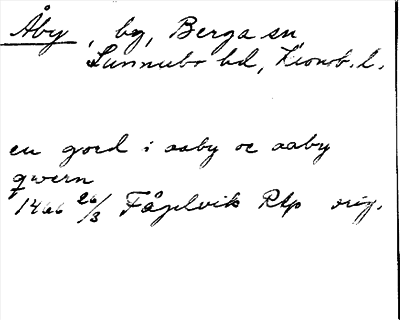 Åby, by, Berga sn
Sunnerbo hd, Kronob. l.
en gord i aaby oc aaby
qwern
1466 26/3 Fågelvik RAp orig.